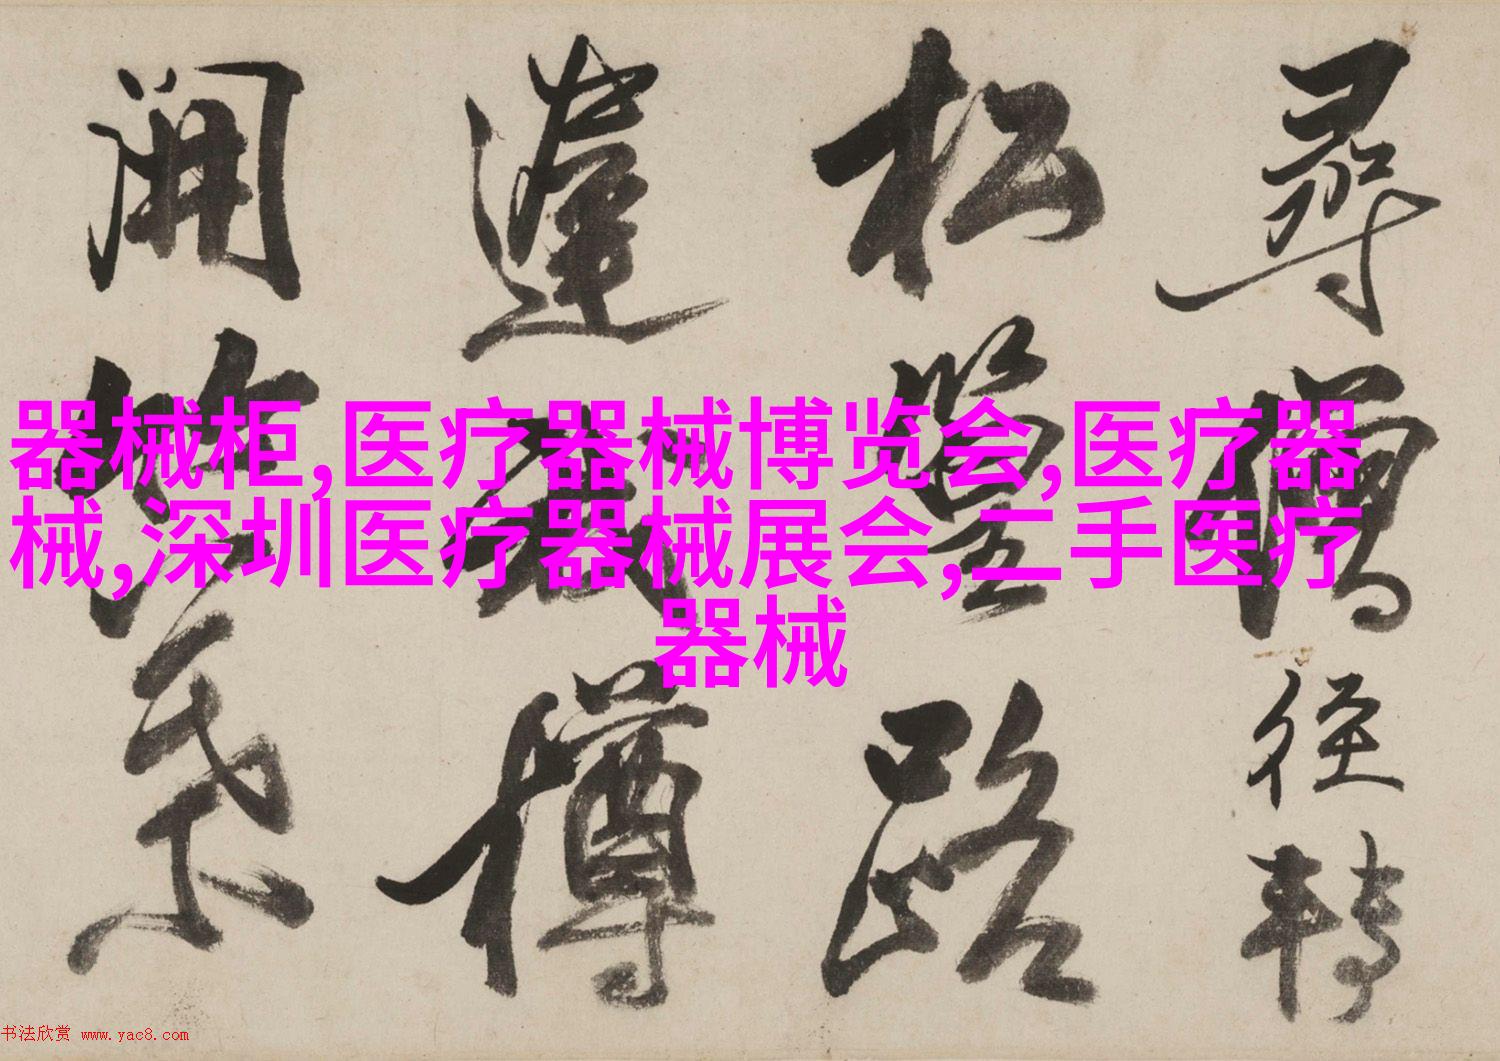 尋僧径轉
松篁路
樽
開
器械柜,医疗器械博览会,医疗器
械,深圳医疗器械展会,二手医疗
器械
书法欣赏 www.yac8.com